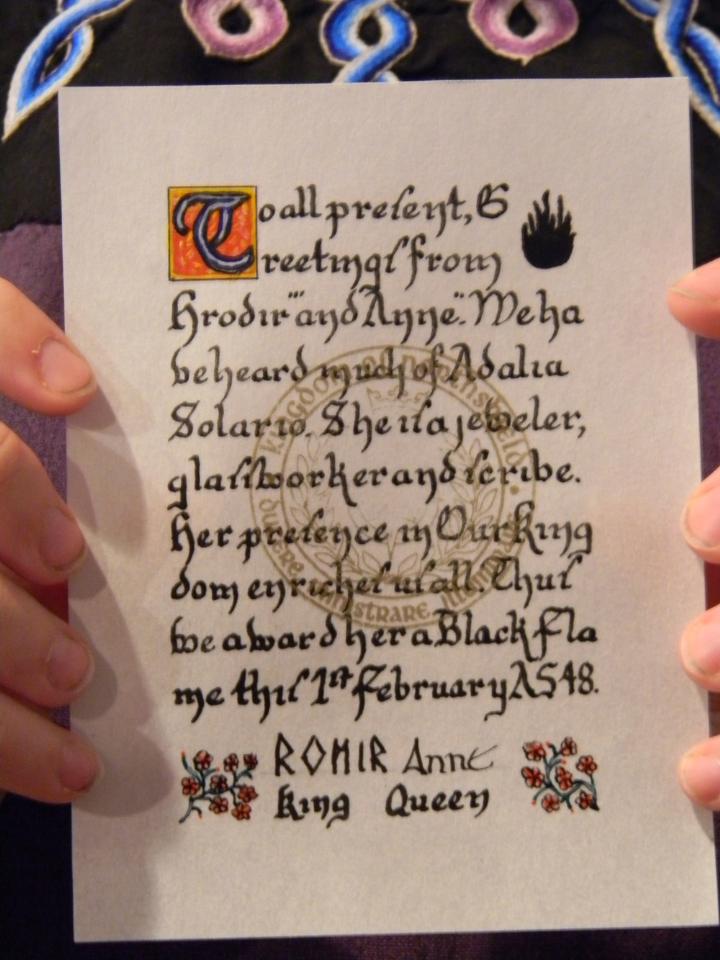 To all preſent, G
reetingſ from
Hrodir''' and Anne''. We ha
ve heard much of Adalia
Solario. She iſ a jeweler,
glaſſworker and ſcribe.
Her preſence in Our King
dom enricheſ uſ all. Thuſ
we award her a Black Fla
me thiſ 1st February AS 48.
ROMIR Anne
King Queen